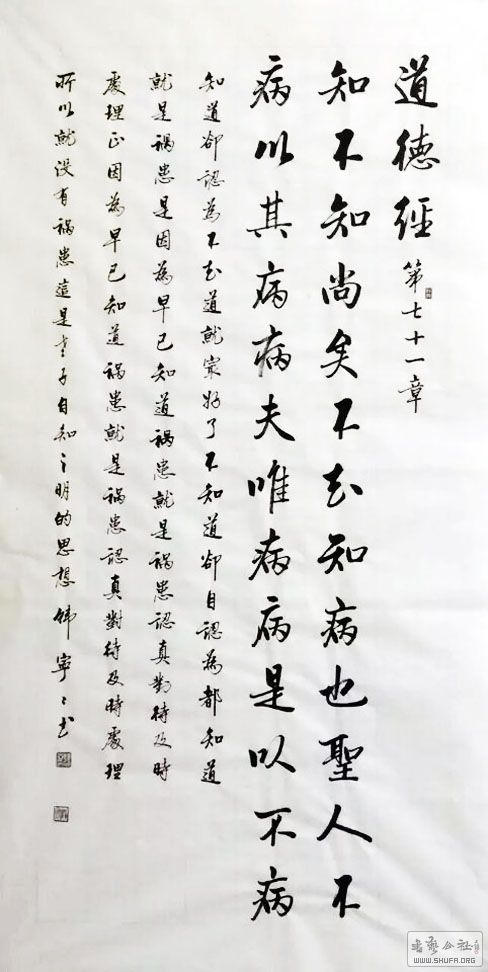 道德經 第七十一章
知不知尚矣不知知病也聖人不
病以其病病夫唯病病是以不病
知道卻認為不知道就最好了不知道卻自認為都知道
就是禍患是因為早已知道禍患就是禍患認真對待及時
處理正因為早已知道禍患就是禍患認真對待及時處理
所以就沒有禍患這是老子自知之明的思想 韓寧寧書
书艺公社
WWW.SHUFA.ORG